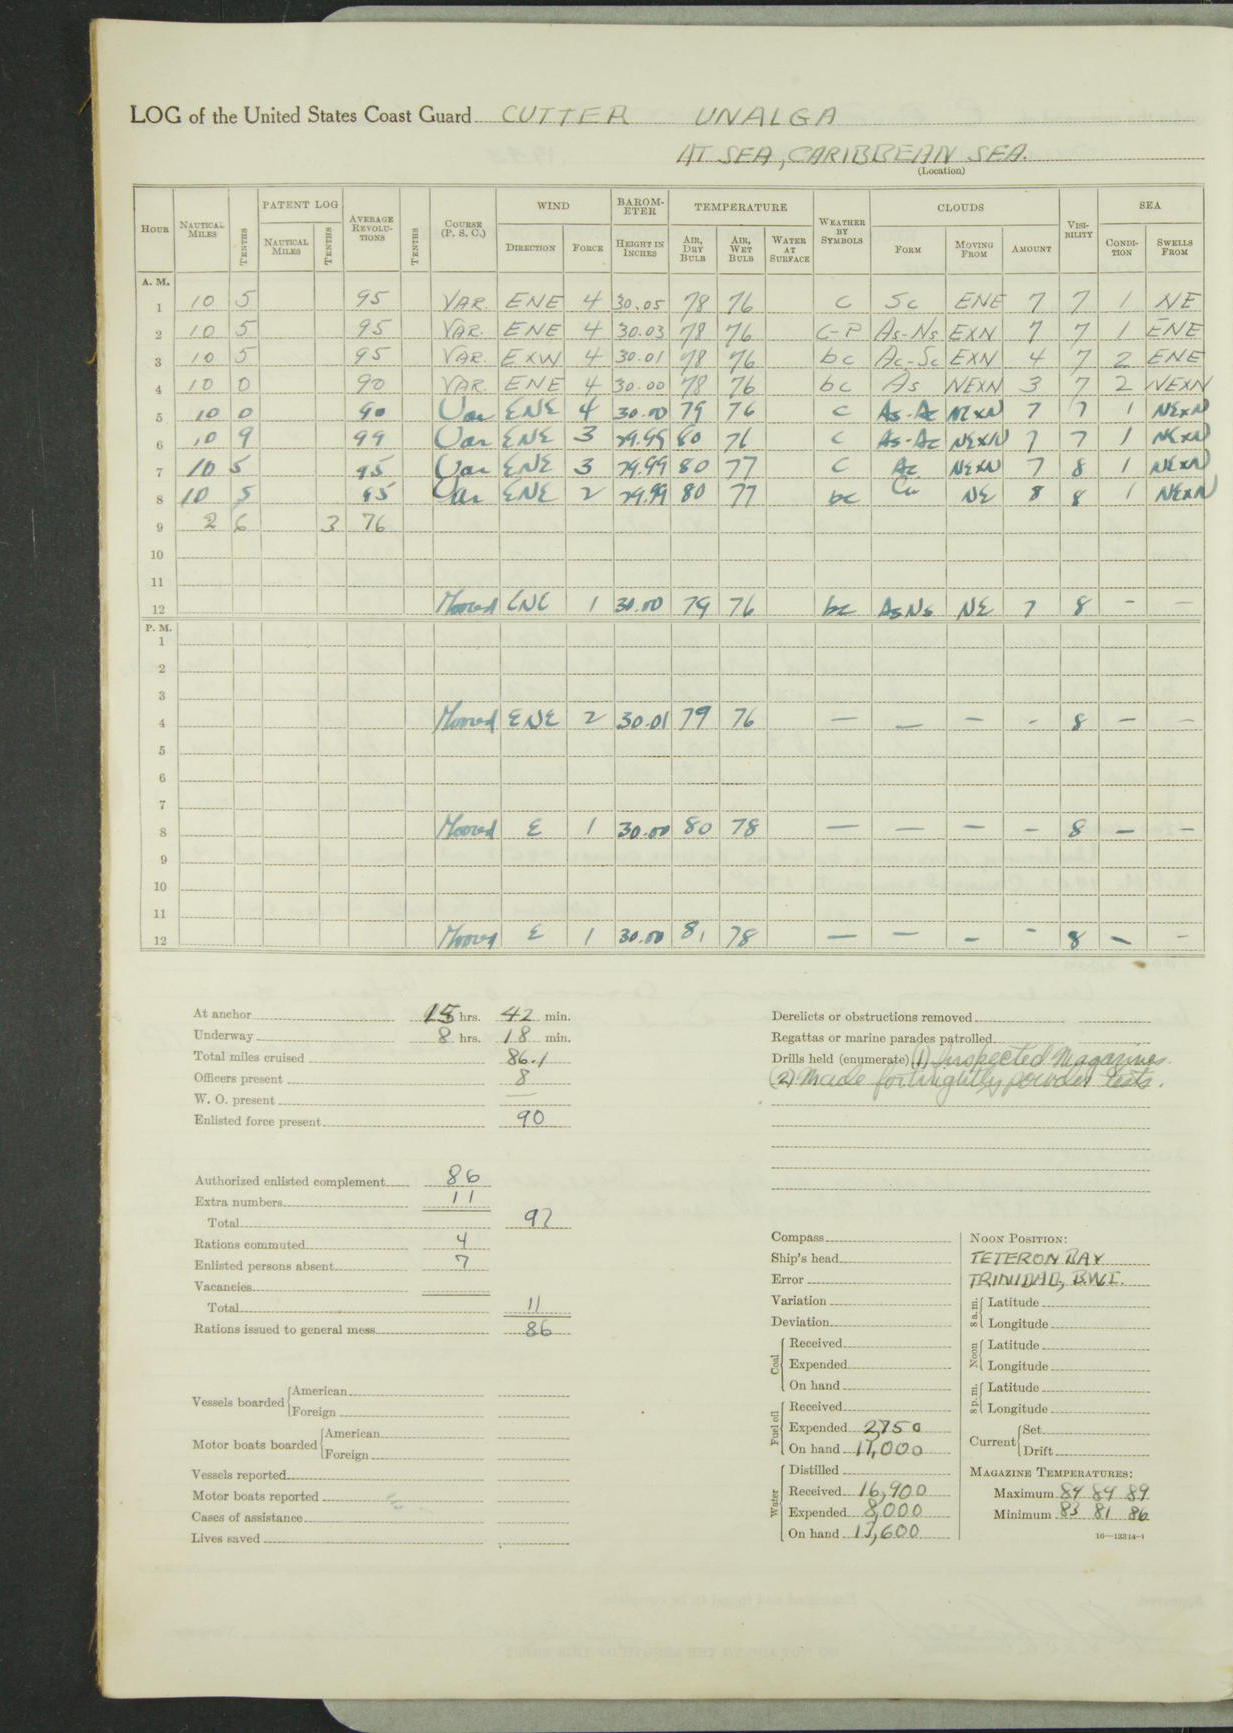 LOG of the United States Coast Guard CUTTER UNALGA
AT SEA, CARIBBEAN SEA.
(Location)
HOUR NAUTICAL MILES TENTHS PATENT LOG NAUTICAL MILES TENTHS AVERAGE REVOLUTIONS TENTHS COURSE (P. S. C.) WIND DIRECTION FORCE BAROMETER HEIGHT IN INCHES TEMPERATURE AIR, DRY BULB AIR, WET BULB WATER AT SURFACE WEATHER BY SYMBOLS CLOUDS FORM MOVING FROM AMOUNT VISIBILITY SEA CONDITION SWELLS FROM
A. M.
1 10 5 95 VAR. ENE 4 30.05 78 76 C Sc ENE 7 7 1 NE
2 10 5 95 VAR. ENE 4 30.03 78 76 C-P As-Ns EXN 7 7 1 ENE
3 10 5 95 VAR. EXN 4 30.01 78 76 bc Ac-Sc EXN 4 7 2 ENE
4 10 0 90 VAR. ENE 4 30.00 78 76 bc As NEXN 3 7 2 NEXN
5 10 0 90 Var ENE 4 30.00 79 76 C As-Ac NExN 7 7 1 NExN
6 10 9 99 Var ENE 3 29.99 80 76 C As-Ac NExN 7 7 1 NExN
7 10 5 95 Var ENE 3 29.99 80 77 C Ac NExN 7 8 1 NExN
8 10 5 95 Var ENE 2 29.99 80 77 bc Cu NE 8 8 1 NExN
9 2 6 3 76
10
11
12 Moored ENE 1 30.00 79 76 bc AsNs NE 7 8 - -
P. M.
1
2
3
4 Moored ENE 2 30.01 79 76 — — — - 8 — -
5
6
7
8 Moored E 1 30.00 80 78 — — — - 8 — -
9
10
11
12 Moored E 1 30.00 81 78 — — - - 8 - -
At anchor 15 hrs. 42 min.
Underway 8 hrs. 18 min.
Total miles cruised 86.1
Officers present 8
W. O. present —
Enlisted force present 90
Authorized enlisted complement 86
Extra numbers 11
Total 97
Rations commuted 4
Enlisted persons absent 7
Vacancies
Total 11
Rations issued to general mess 86
Vessels boarded American
Foreign
Motor boats boarded American
Foreign
Vessels reported
Motor boats reported
Cases of assistance
Lives saved
Derelicts or obstructions removed
Regattas or marine parades patrolled
Drills held (enumerate) (1) Inspected Magazines
(2) Made fortnightly powder tests.
Compass
Ship's head
Error
Variation
Deviation
Coal Received
Expended
On hand
Fuel oil Received
Expended 2,750
On hand 17,000
Water Distilled
Received 16,900
Expended 8,000
On hand 13,600
NOON POSITION:
TETERON BAY
TRINIDAD, B.W.I.
8 a.m. Latitude
Longitude
Noon Latitude
Longitude
8 p.m. Latitude
Longitude
Current Set
Drift
MAGAZINE TEMPERATURES:
Maximum 84 84 89
Minimum 83 81 86
16—13314-1